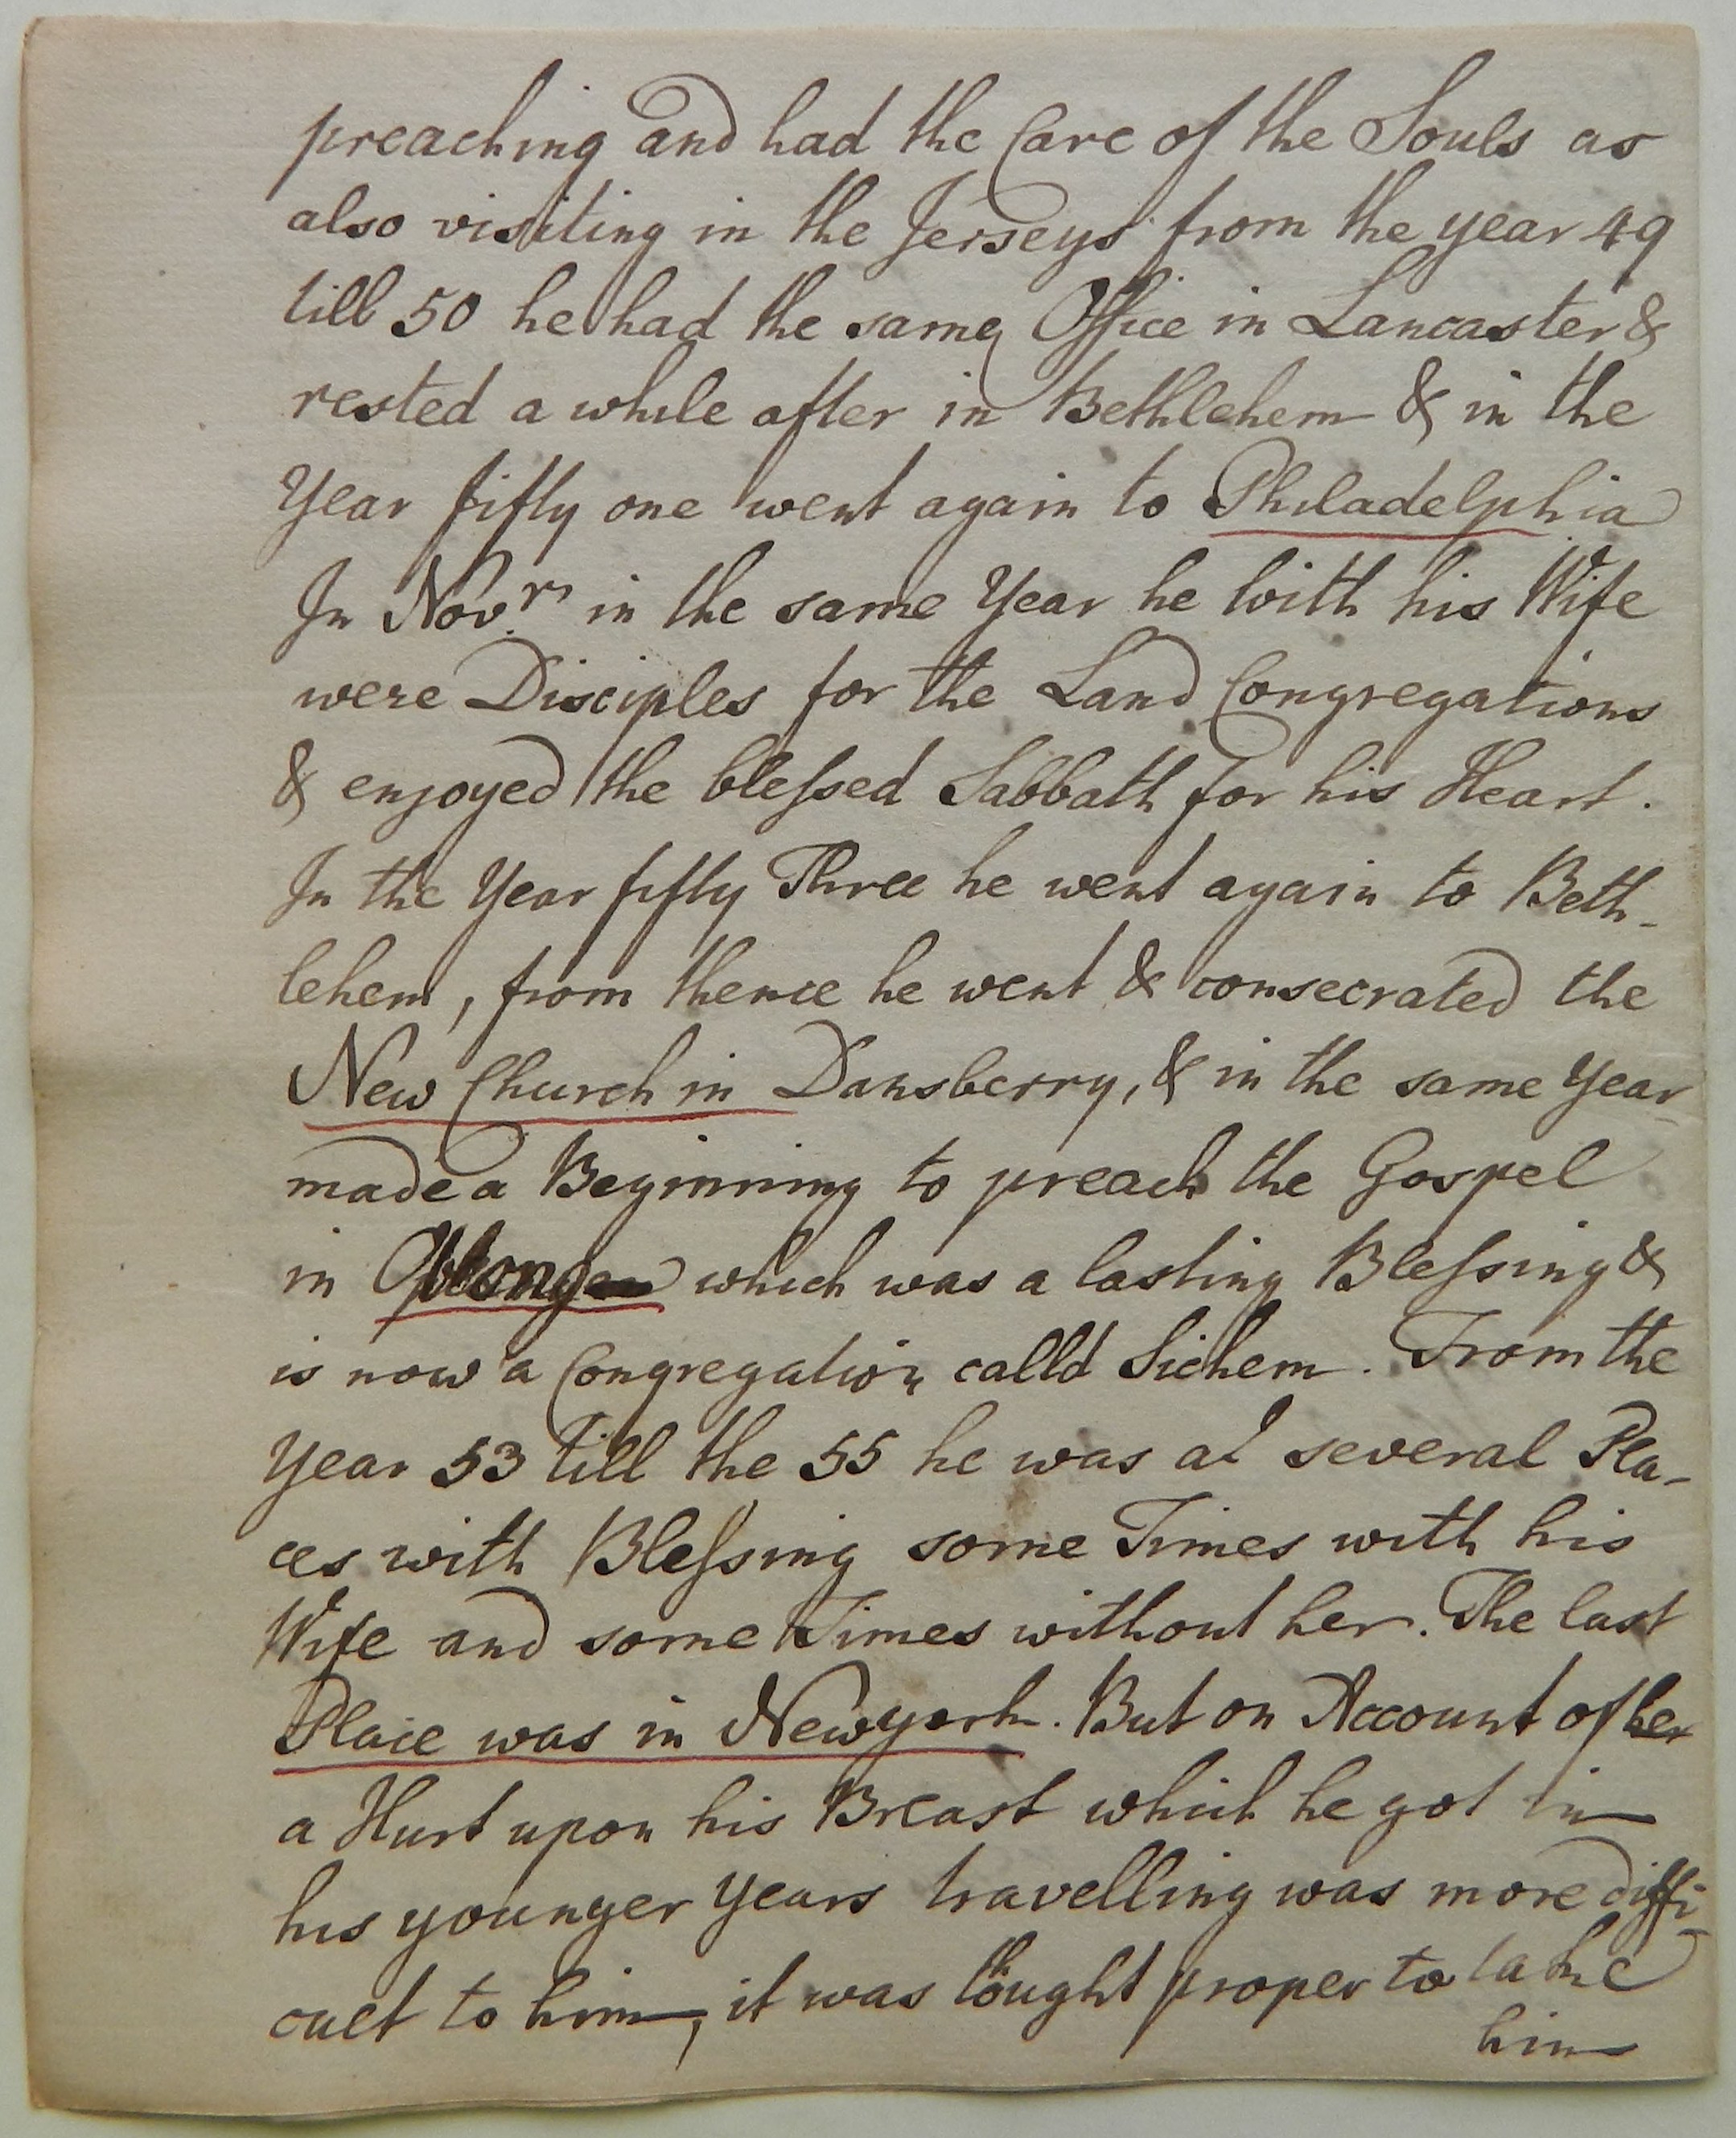 preaching and had the Care of the Souls as
also visiting in the Jerseys from the year 49
till 50 he had the same Office in Lancaster &
rested a while after in Bethlehem & in the
Year fifty one went again to Philadelphia
In Nov.r in the same Year he with his Wife
were Disciples for the Land Congregations
& enjoyed the blessed Sabbath for his Heart.
In the Year fifty Three he went again to Beth-
lehem, from thence he went & consecrated the
New Church in Dansberry, & in the same Year
made a Beginning to preach the Gospel
in Oblong which was a lasting Blessing &
is now a Congregation calld Sichem. From the
Year 53 till the 55 he was at several Pla-
ces with Blessing some Times with his
Wife and some Times without her. The last
Place was in Newyork. But on Account of
a Hurt upon his Breast which he got in
his younger Years travelling was more diffi-
cult to him, it was thought proper to take
him